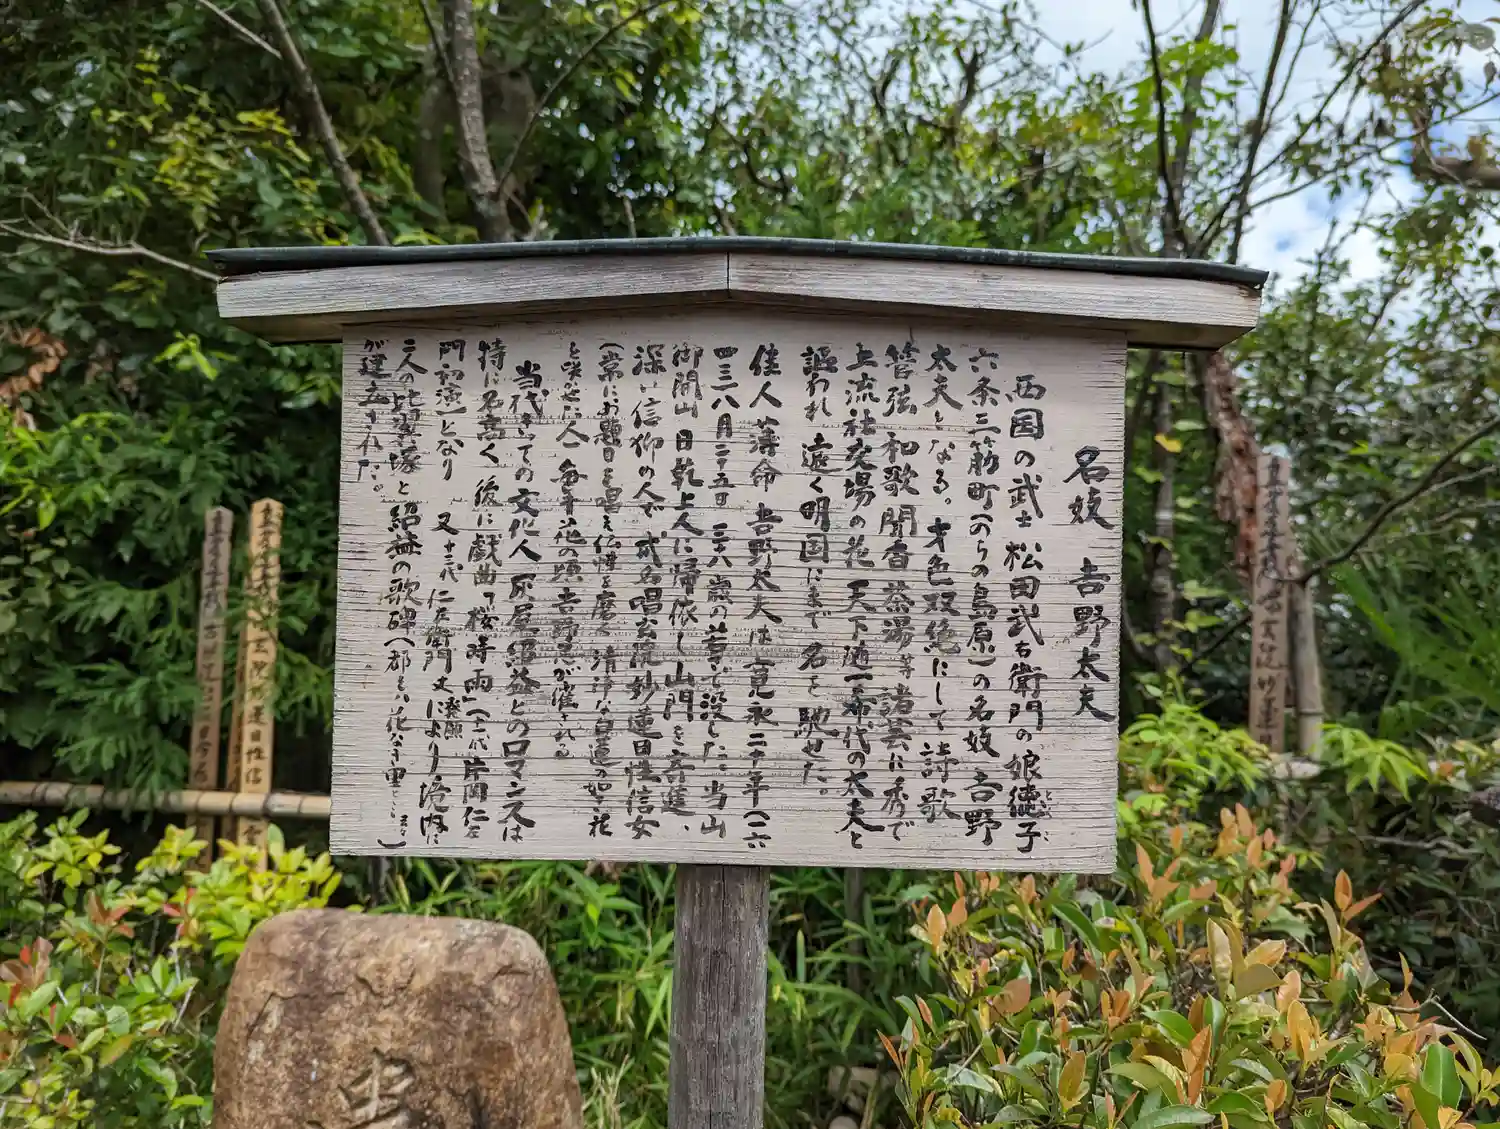 名妓 吉野太夫
西国の武士 松田武右衛門の娘徳子
六条三筋町(のちの島原)の名妓 吉野
太夫となる。才色双絶にして 詩歌
管弦 和歌 聞香 茶湯等諸芸に秀で
上流社交場の花 天下随一希代の太夫と
謳われ 遠く明国にまで 名を馳せた。
佳人薄命 吉野太夫は 寛永二十年(一六
四三)八月二十五日 三十八歳の若さで没した。当山
御開山 日乾上人に帰依し 山門を寄進、
深い信仰の人で 戒名唱玄院妙蓮日性信女
(常にお題目を唱え仏性を磨く 清浄な白蓮の如き花
と咲かせた人 毎年花の頃 吉野忌が催される
当代きっての文化人 灰屋紹益とのロマンスは
特に名高く 後に戯曲「桜時雨」(十一代 片岡仁左
門初演)となり 又 十三代 仁左衛門丈 発願 により 境内に
二人の比翼塚と 紹益の歌碑(都をば 花なき里 云々)
が建立された。